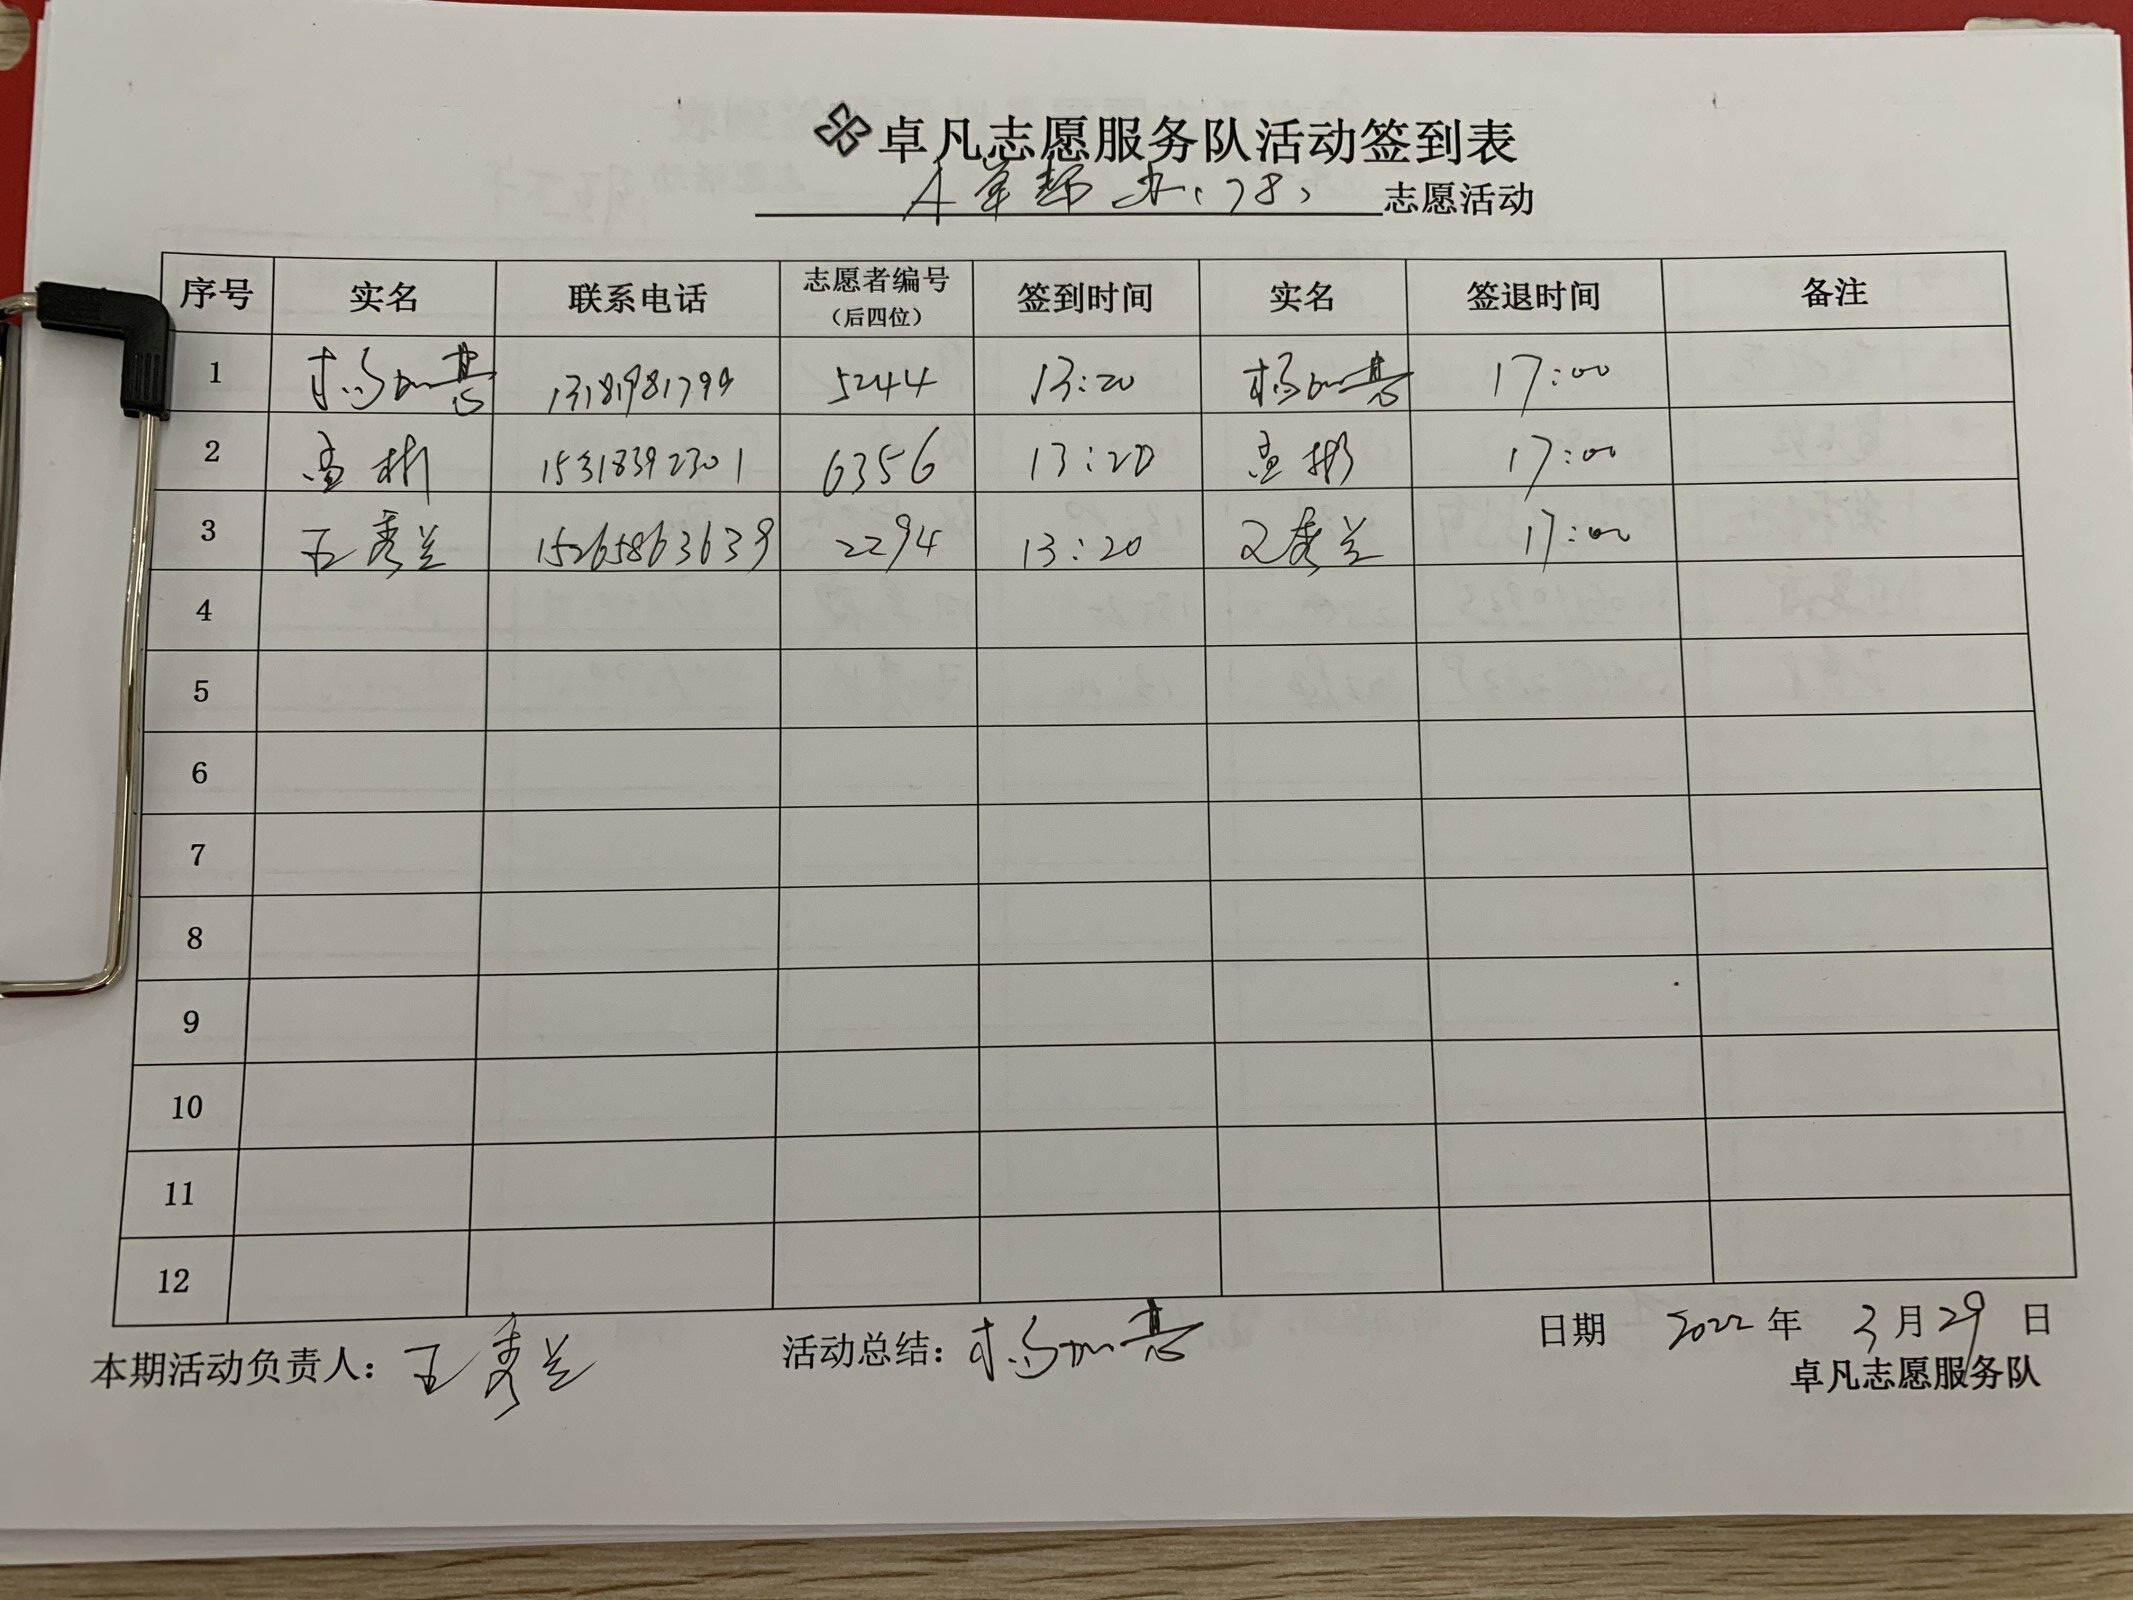 卓凡志愿服务队活动签到表
志愿活动
序号 实名 联系电话 志愿者编号（后四位） 签到时间 实名 签退时间 备注
1 13181981799 5244 13:20 17:00
2 孟彬 15318392301 6356 13:20 孟彬 17:00
3 王秀兰 15265863639 2294 13:20 王秀兰 17:00
4
5
6
7
8
9
10
11
12
本期活动负责人：王秀兰 活动总结： 日期 2022年 3月29日
卓凡志愿服务队